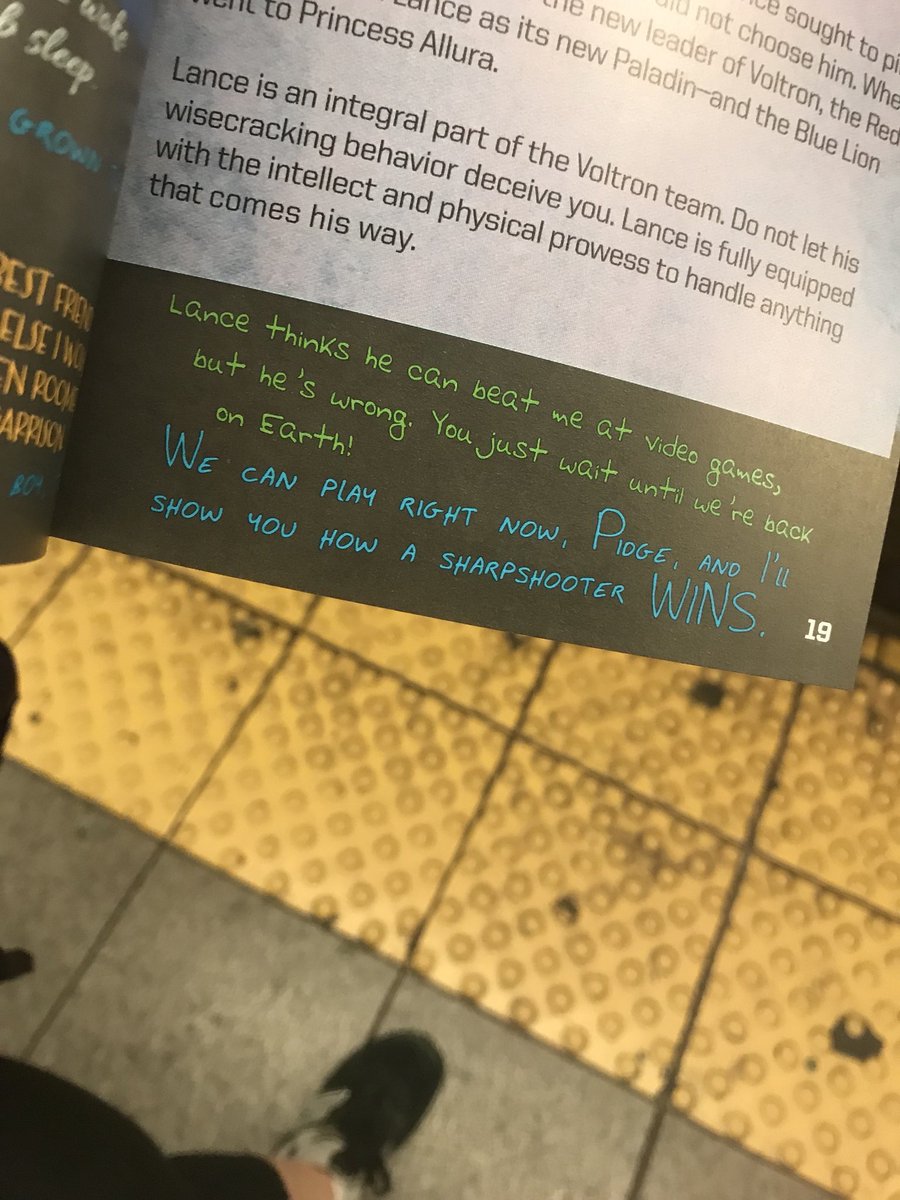 sleep.
GROWN-
BEST FRIEN
ELSE I WO
EN ROOM
GARRISON
BOY
sought to pi
did not choose him. Whe
the new leader of Voltron, the Red
Lance as its new Paladin—and the Blue Lion
went to Princess Allura.
Lance is an integral part of the Voltron team. Do not let his
wisecracking behavior deceive you. Lance is fully equipped
with the intellect and physical prowess to handle anything
that comes his way.
Lance thinks he can beat me at video games,
but he's wrong. You just wait until we're back
on Earth!
WE CAN PLAY RIGHT NOW, PIDGE, AND I'll
SHOW YOU HOW A SHARPSHOOTER WINS.
19